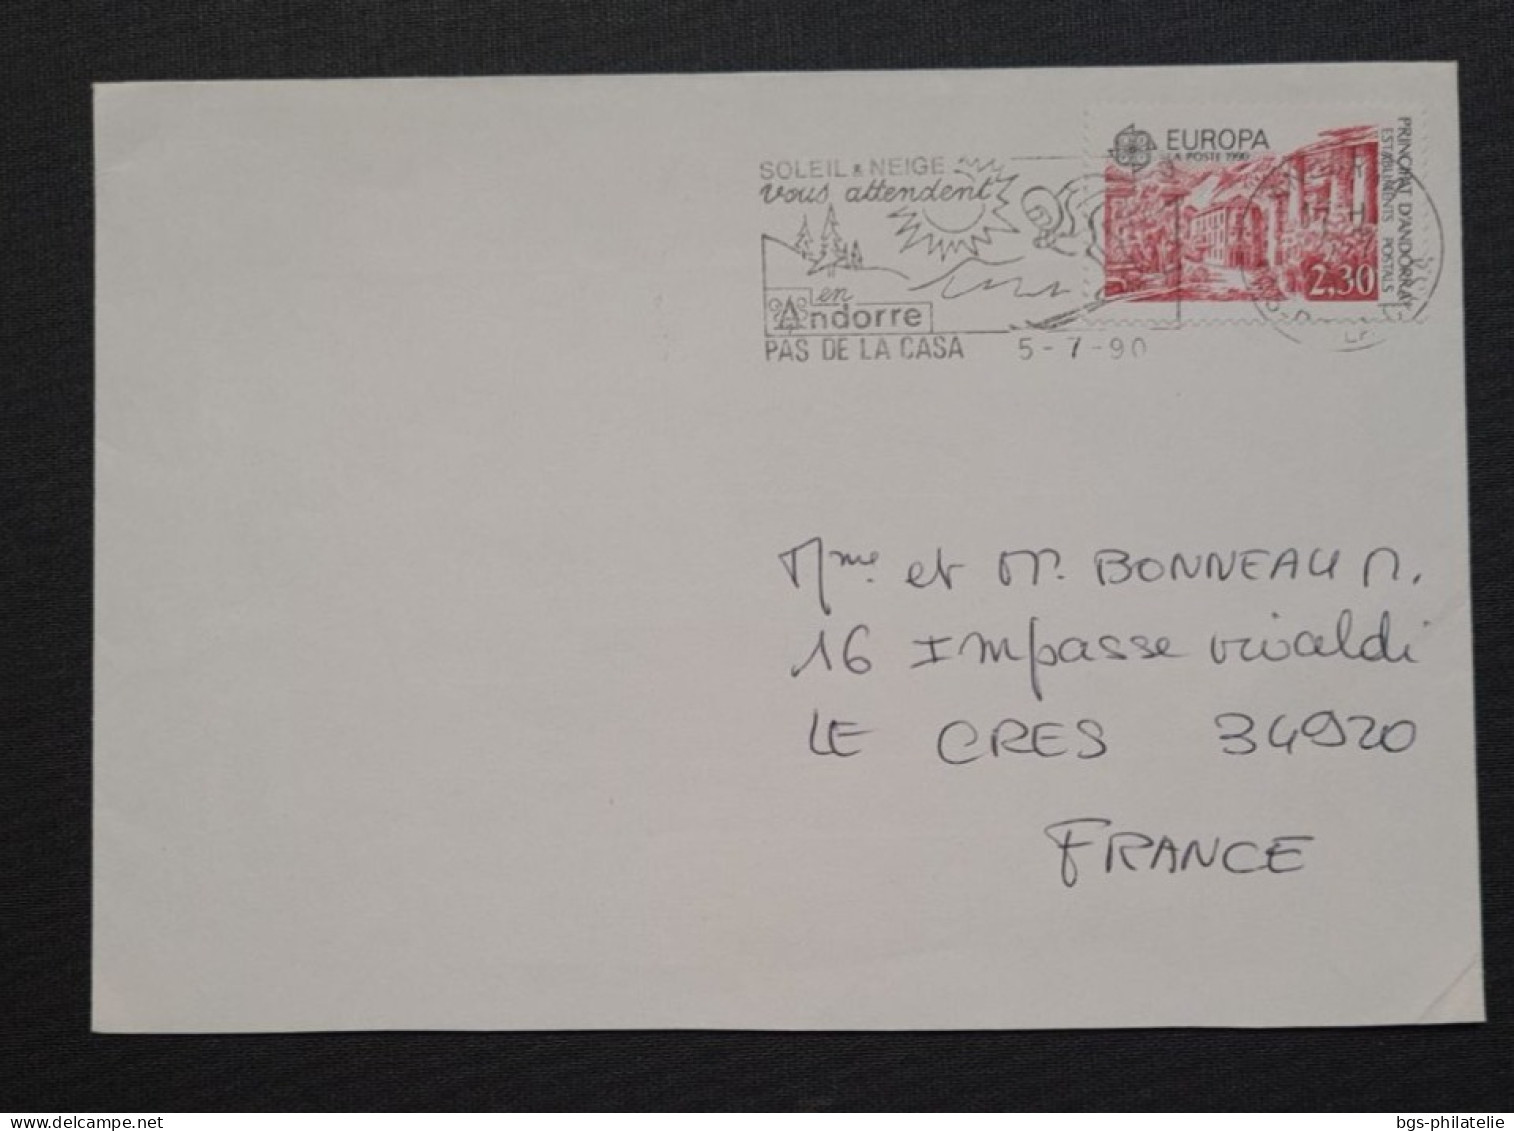 SOLEIL & NEIGE
vous attendent
en
Andorre
PAS DE LA CASA 5-7-90
EUROPA
LA POSTE 1990
PRINCIPAT D'ANDORRA
ESTABLIMENTS POSTALS
2,30
17 H
Mme. et Mr. BONNEAU M.
16 Impasse vivaldi
LE CRES 34920
FRANCE
delcampe.net
bgs-philatelie